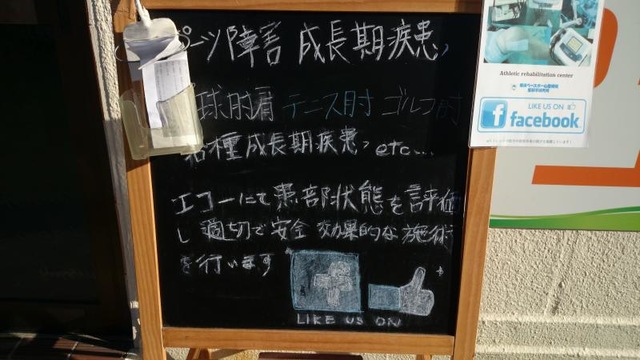 ーツ障害 成長期疾患,
球肘肩 テニス肘 ゴルフ肘
各種成長期疾患, etc...
エコーにて患部状態を評価
し 適切で安全 効果的な施術
を行います
LIKE US ON
Athletic rehabilitation center
LIKE US ON
facebook